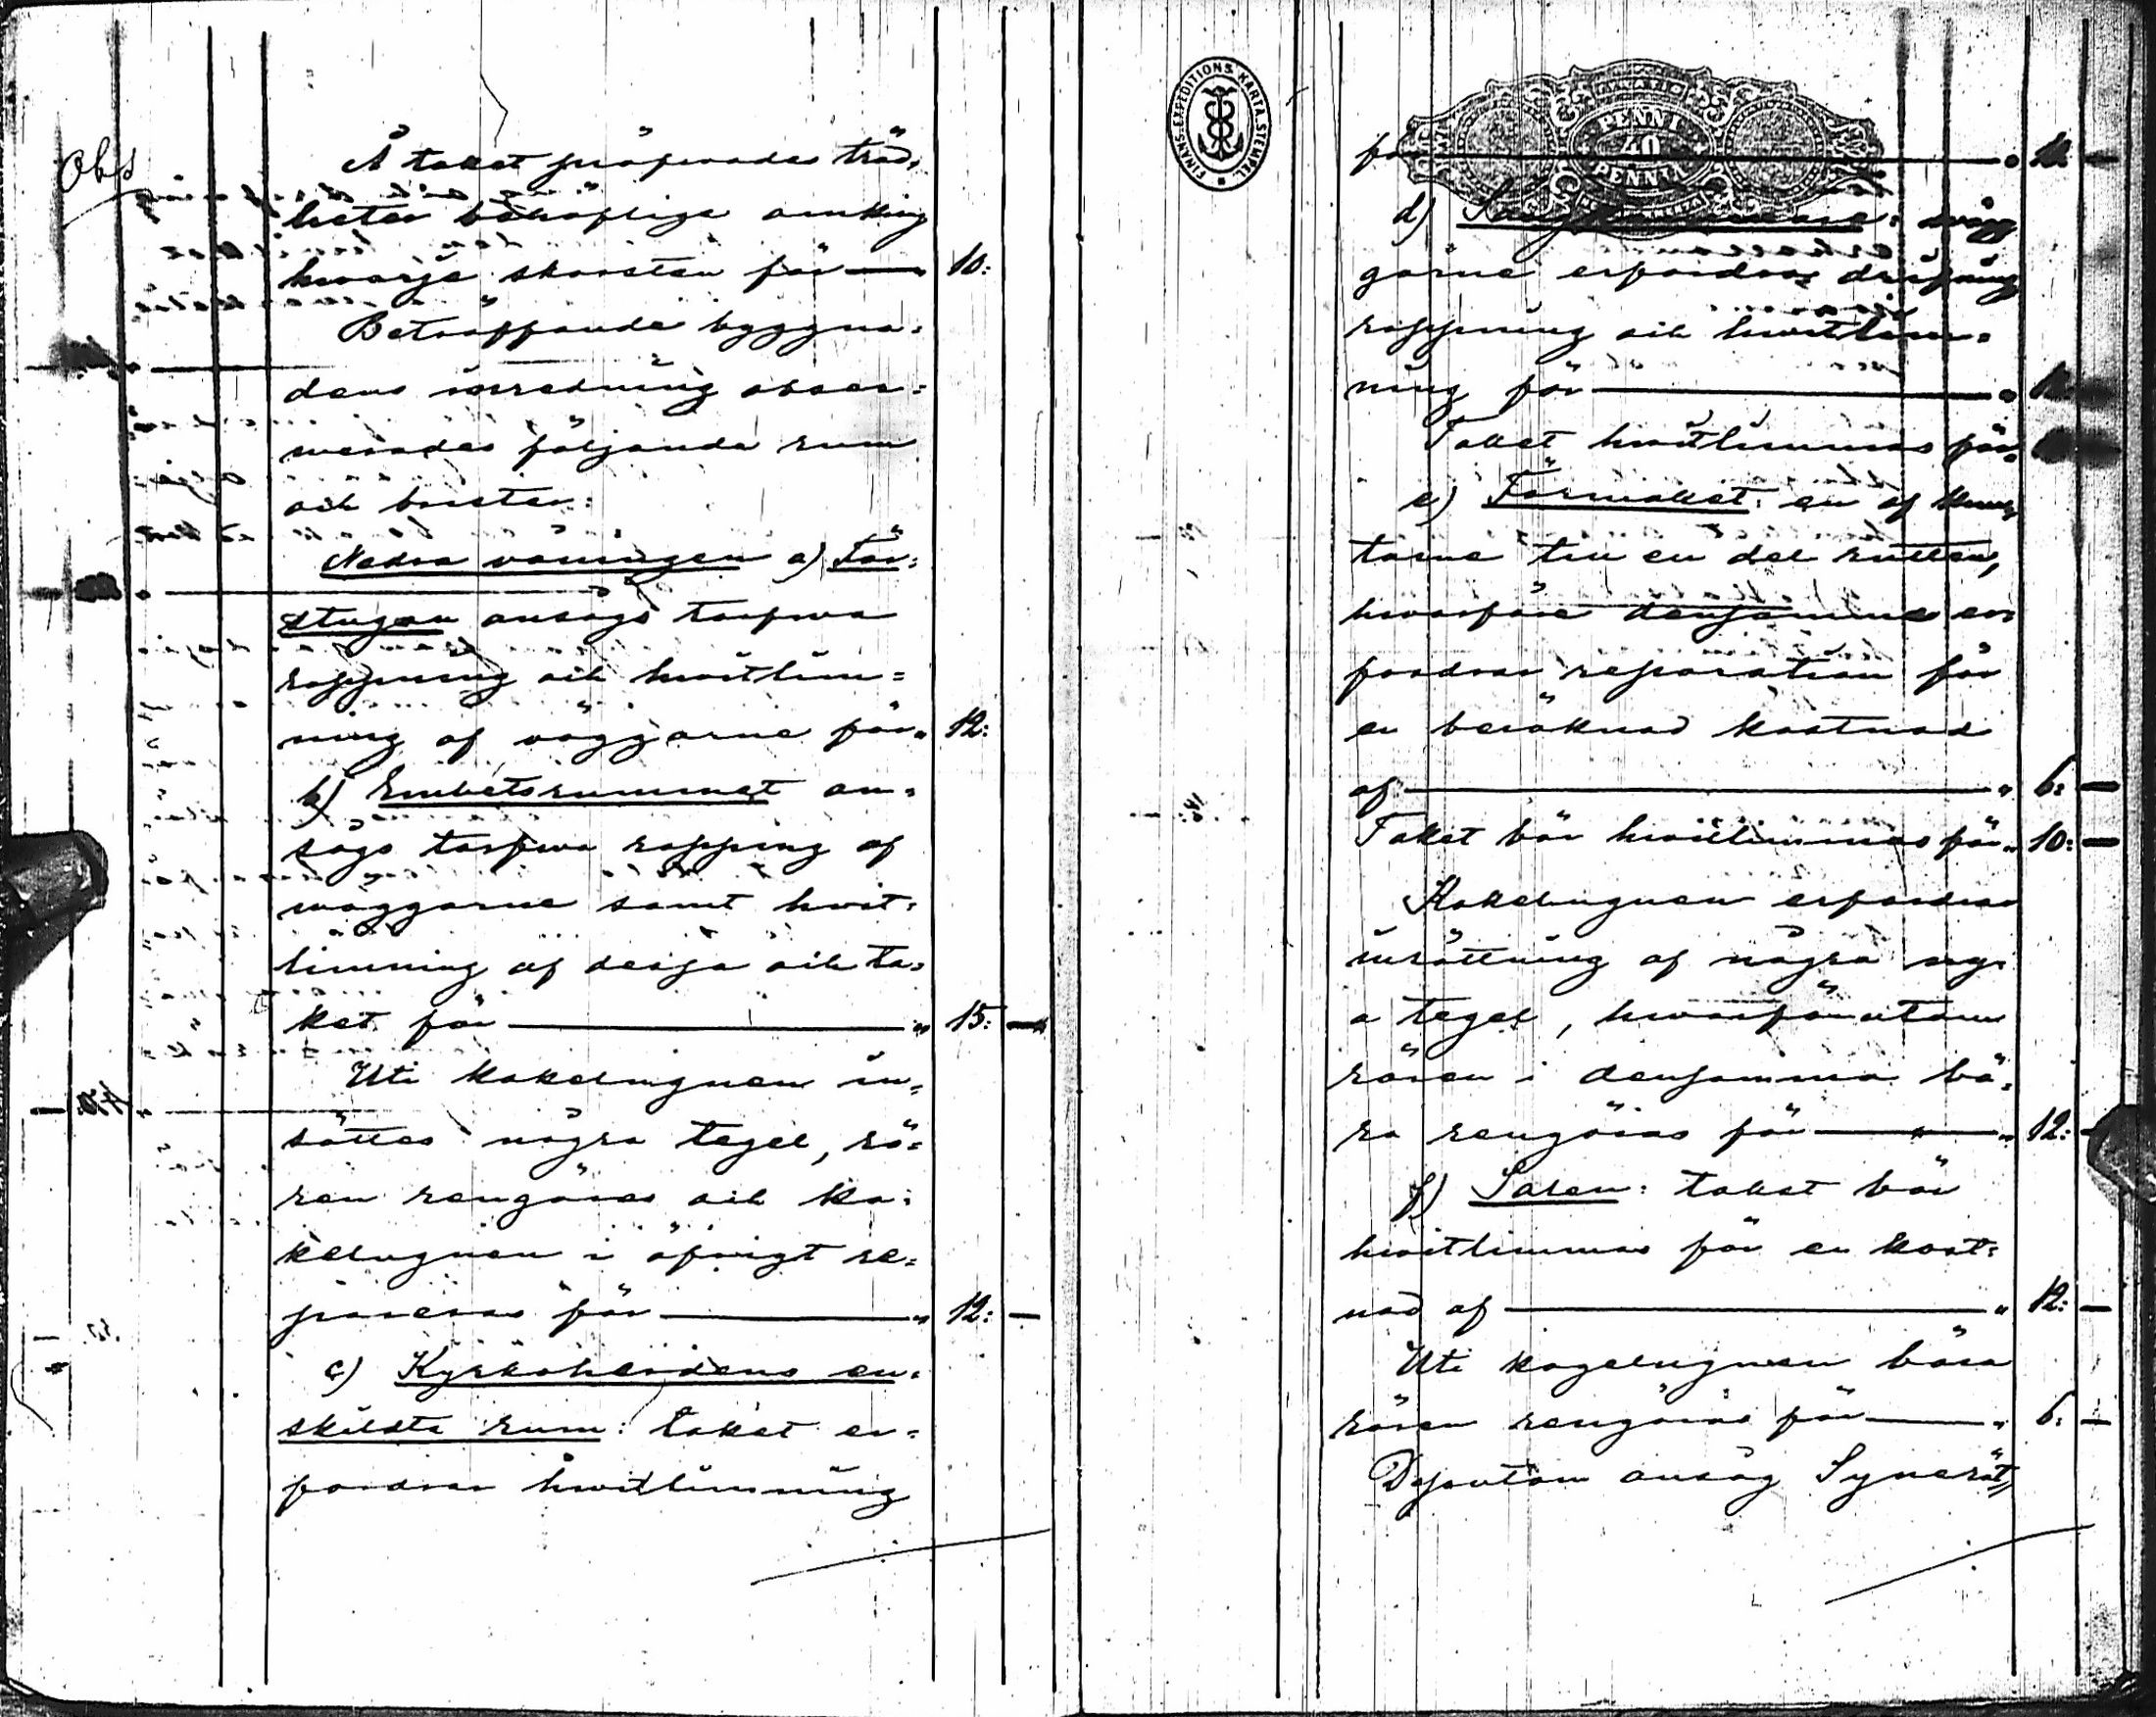 Obs
Å taket pröfvades träd-
heter behöflige omkring
hvarje skorsten för — " 10:
Beträffande byggna-
dens inredning obser-
verades följande rum
och brister:
Nedra våningen a) För-
stugan ansågs tarfva
rappning och hvitlim-
ning af väggarne för " 12:
b) Embetsrummet an-
sågs tarfva rapping af
väggarne samt hvit-
limning af dessa och ta-
ket för — " 15: —
Uti kakelugnen in-
sättes några tegel, rö-
ren rengöras och ka-
kelugnen i öfrigt re-
pareras för — " 12: —
c) Kyrkoherdens en-
skildta rum: taket er-
fordrar hvitlimning
FINANS-EXPEDITIONS KARTA. STEMPEL.
PENNI 40 PENNIÄ
för —
d) väg
garne erfordra drifning
rappning och hvitlim-
ning för —
Taket hvitlimmas för
e) Förmaket: en af knu
tarne till en del rutten,
hvarföre densamma er
fordrar reparation för
en beräknad kostnad
af — " 6: —
Taket bör hvitlimmas för " 10: —
Kakelugnen erfordrar
insättning af några ny-
a tegel, hvarförutom
rören i densamma bö-
ra rengöras för — " 12: —
f) Salen: taket bör
hvitlimmas för en kost-
nad af — " 12: —
Uti kagelugnen böra
rören rengöras för — " 6: —
Dessutom ansåg Synerät